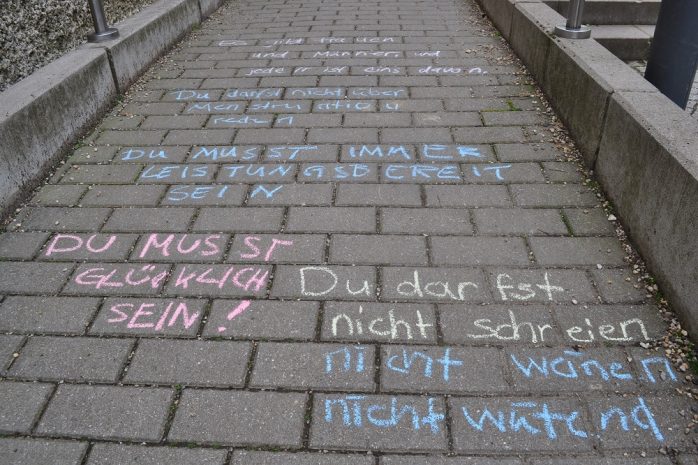 Es gibt Frauen
und Männer, und
jede*r ist eins davon.
Du darfst nicht über
Menstruation
reden
DU MUSST IMMER
LEISTUNGSBEREIT
SEIN
DU MUSST
GLÜCKLICH
SEIN!
Du darfst
nicht schreien
nicht weinen
nicht wütend